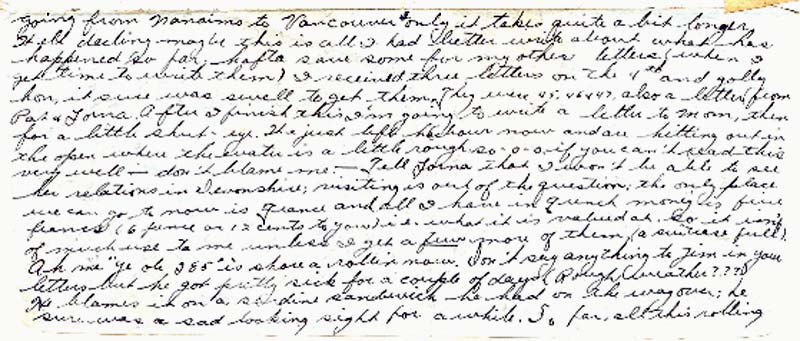 going from Nanaimo to Vancouver only it takes quite a bit longer.
Well darling maybe this is all I had better write about what has
happened so far; hafta save some for my other letters (when I
get time to write them) I received three letters on the 4th and golly
hon, it sure was swell to get them. They were 45, 46 & 47, also a letter from
Pat & Lorna. After I finish this, I'm going to write a letter to Mom, then
for a little shut-eye. We just left the harbour now and are hitting out in
the open where the water is a little rough so-o-o, if you can't read this
very well — don't blame me — Tell Lorna that I won't be able to see
her relations in Devonshire; visiting is out of the question; the only place
we can go to now is France and all I have in French money is five
francs (6 pence or 12 cents to you) i.e. what it is valued at. So it isn't
of much use to me unless I get a few more of them (a suitcase full).
Ah me "ye ole 285" is shore a rollin now. Don't say anything to Jim in your
letters but he got pretty sick for a couple of days (Rough Weather???)
He blames it on a sardine sandwich he had on the way over; he
sure was a sad looking sight for a while. So far, all this rolling